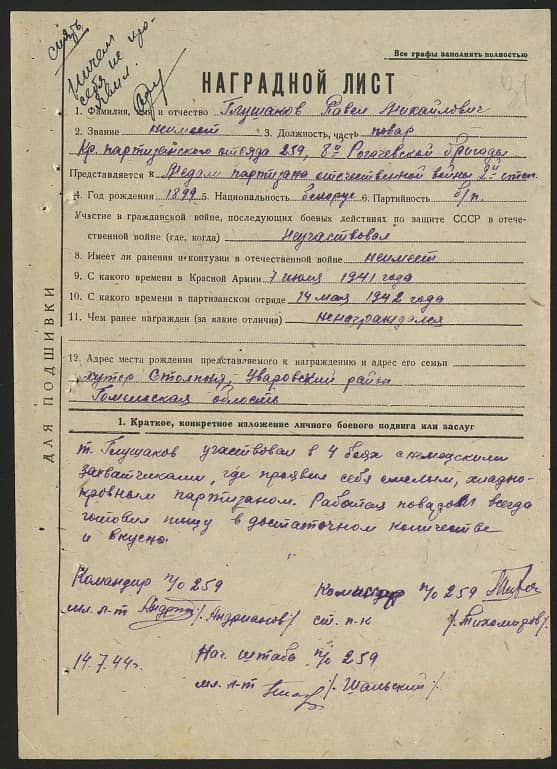 снять
ничем
себя не про-
явил.
Все графы заполнять полностью
НАГРАДНОЙ ЛИСТ
1. Фамилия, имя и отчество Глушаков Павел Михайлович
2. Звание неимеет 3. Должность, часть повар
партизанского отряда 259, 8й Рогачевской бригады
Представляется к Медали партизана отечественной войны 2й степ.
4. Год рождения 1899 5. Национальность белорус 6. Партийность б/п.
Участие в гражданской войне, последующих боевых действиях по защите СССР в отече-
ственной войне (где, когда) Неучаствовал
8. Имеет ли ранения и контузии в отечественной войне неимеет
9. С какого времени в Красной Армии 7 июля 1941 года
10. С какого времени в партизанском отряде 14 мая 1942 года
11. Чем ранее награжден (за какие отличия) ненаграждался
12. Адрес места рождения представляемого к награждению и адрес его семьи
хутор Столпня, Уваровский район
Гомельская область
ДЛЯ ПОДШИВКИ
1. Краткое, конкретное изложение личного боевого подвига или заслуг
т. Глушаков участвовал в 4 боях с немецкими
захватчиками, где проявил себя смелым, хладно-
кровным партизаном. Работая поваром всегда
готовил пищу в достаточном количестве
и вкусно.
Командир п/о 259
мл. л-т /. Андрианов/
14.7.44г.
п/о 259
ст. п-к /. Тихомиров/
Нач. штаба п/о 259
мл. л-т /. Шальский/.